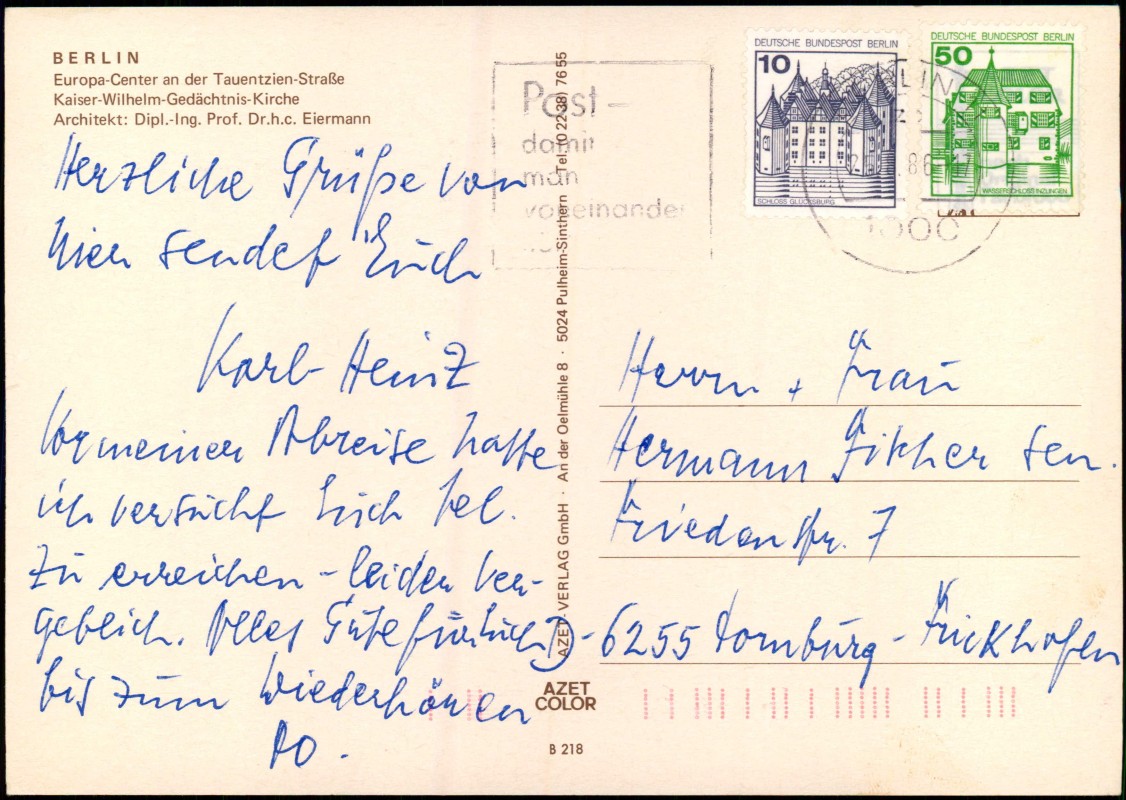 BERLIN
Europa-Center an der Tauentzien-Straße
Kaiser-Wilhelm-Gedächtnis-Kirche
Architekt: Dipl.-Ing. Prof. Dr.h.c. Eiermann
Herzliche Grüße von
hier sendet Euch
Karl-Heinz
Vor meiner Abreise hatte
ich versucht Euch tel.
zu erreichen - leider ver-
geblich. Alles Gute für Euch
bis zum Wiederhören
DO.
Post-
damit
man
voneinander
AZET-VERLAG GmbH · An der Oelmühle 8 · 5024 Pulheim-Sinthern · Tel. (0 22 38) 76 55
AZET
COLOR
B 218
DEUTSCHE BUNDESPOST BERLIN
10
SCHLOSS GLÜCKSBURG
DEUTSCHE BUNDESPOST BERLIN
50
WASSERSCHLOSS INZLINGEN
LIN
86
17
1000
Herrn + Frau
Hermann Fischer sen.
Friedenstr. 7
6255 Dornburg - Frickhofen